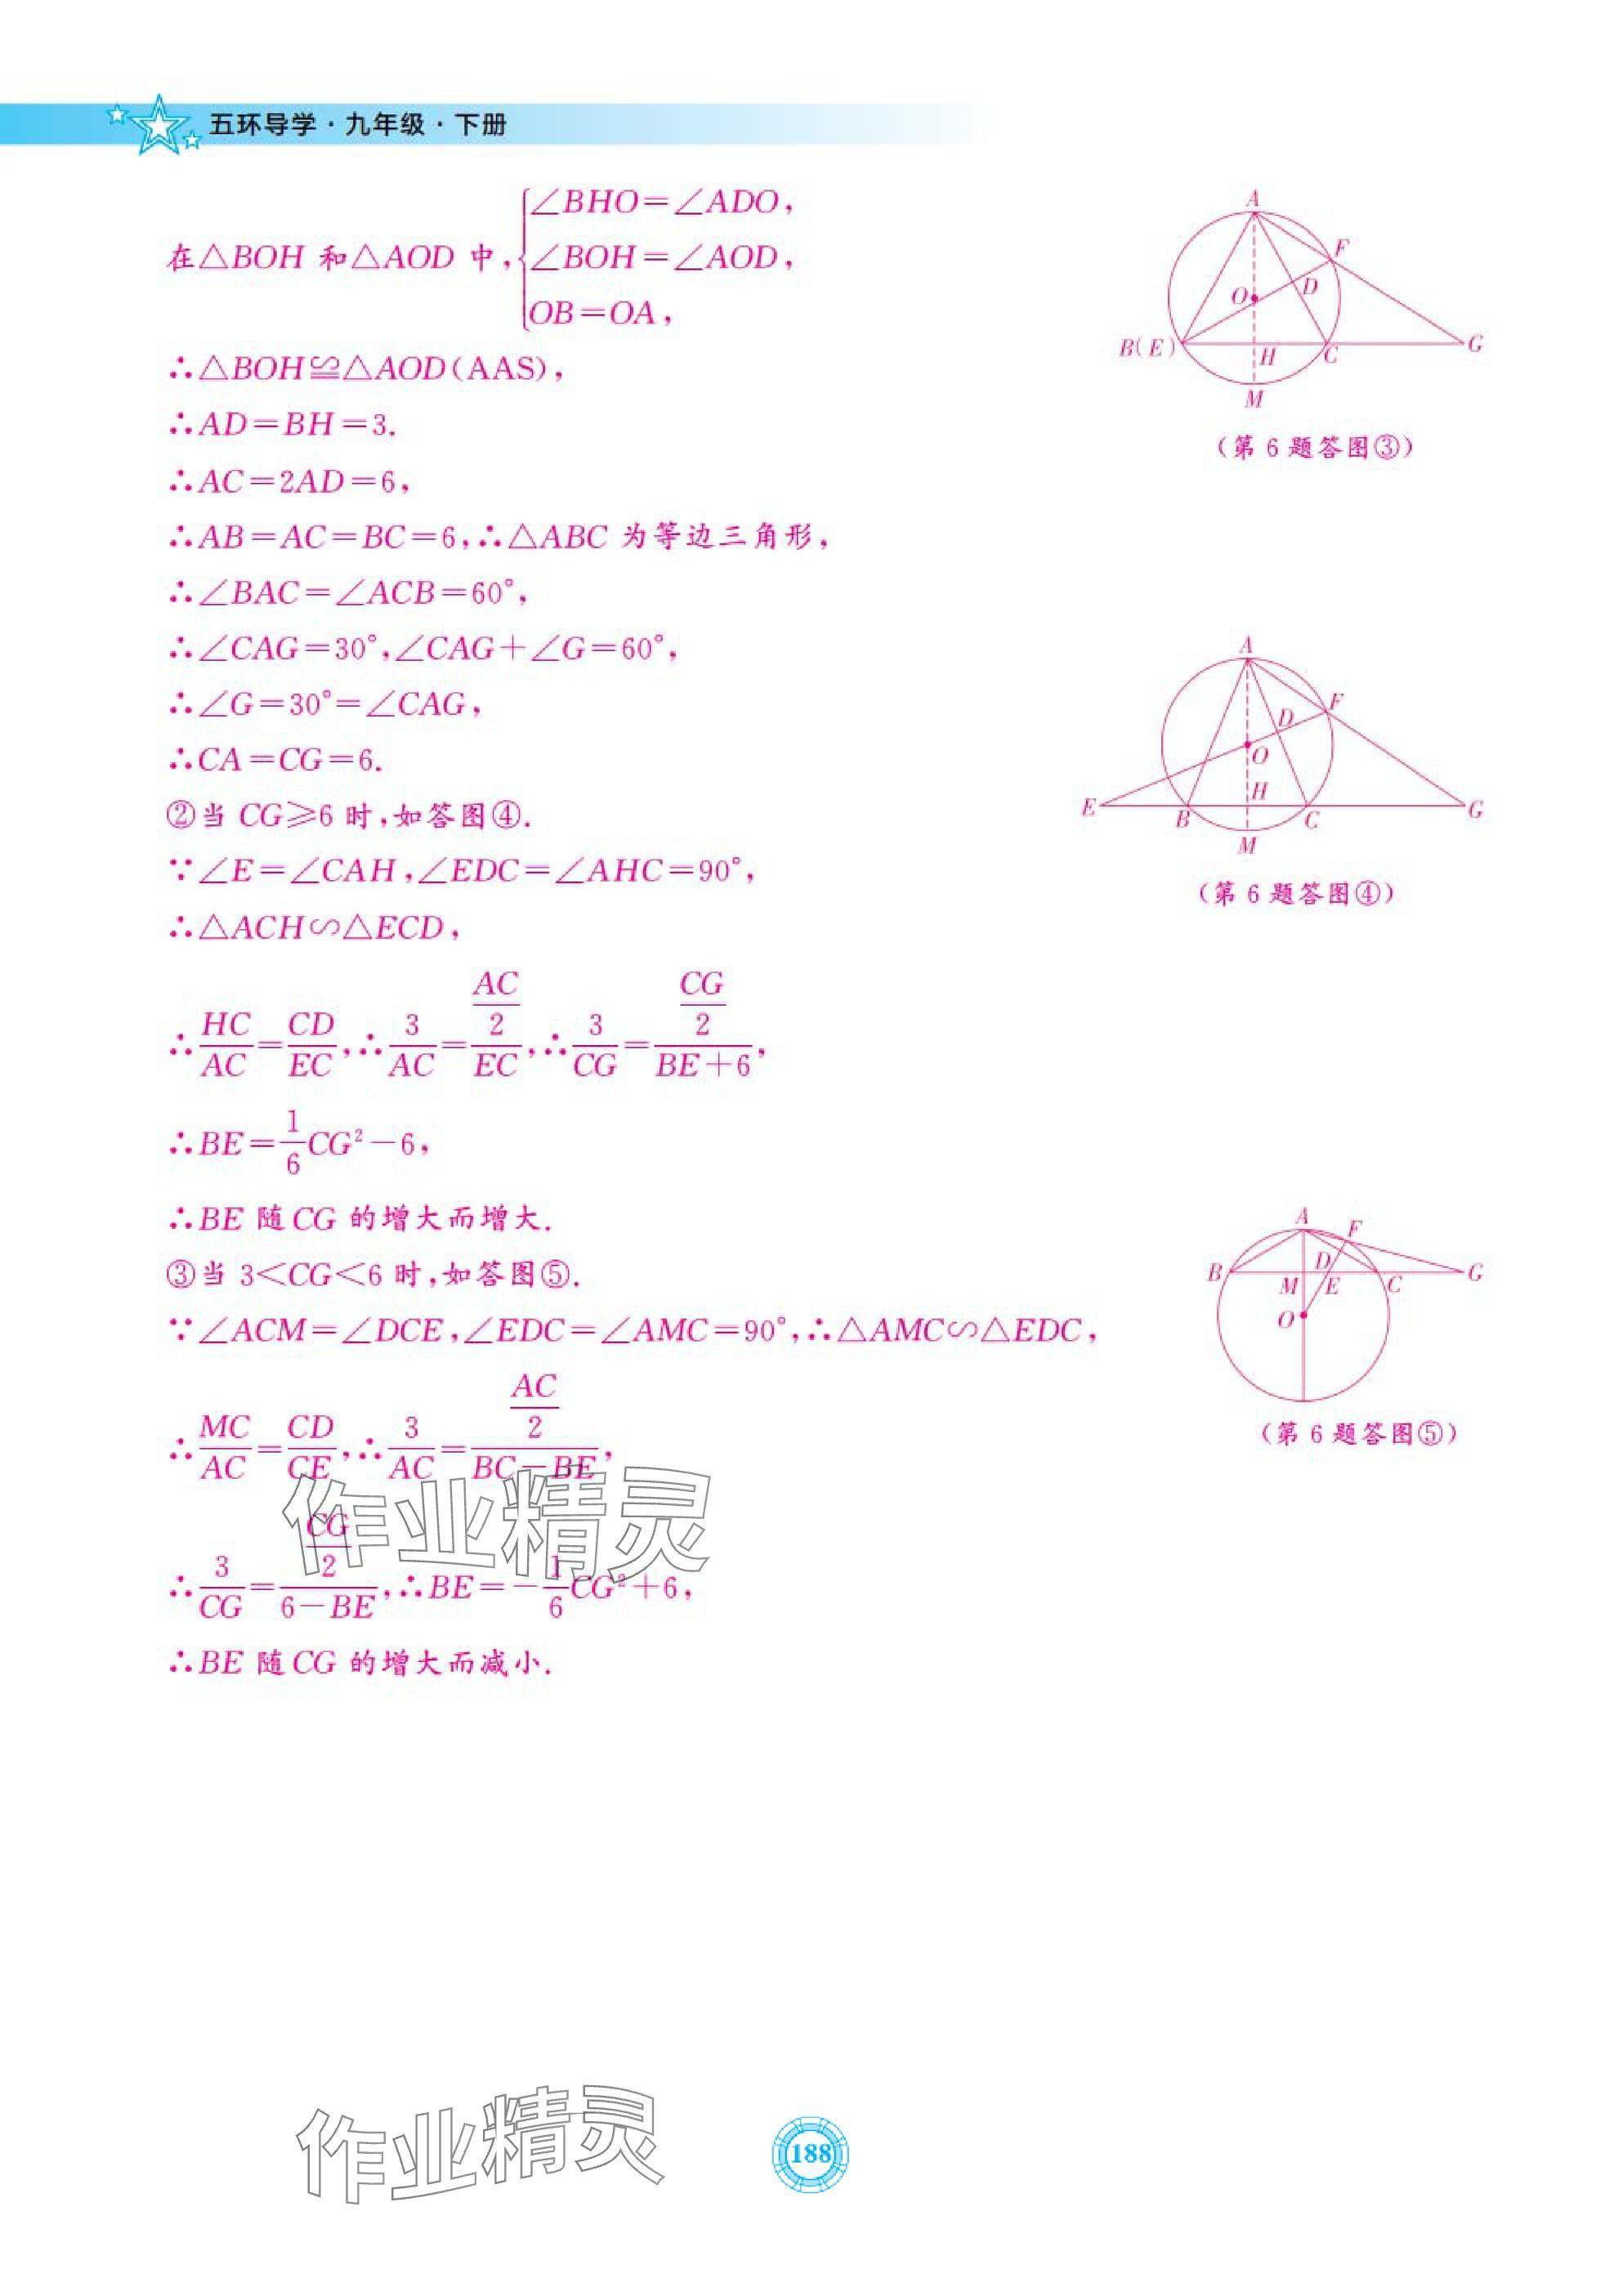 五环导学·九年级·下册
在△BOH 和△AOD 中,{∠BHO=∠ADO,
∠BOH=∠AOD,
OB=OA,
∴△BOH≌△AOD(AAS),
∴AD=BH=3.
∴AC=2AD=6,
∴AB=AC=BC=6,∴△ABC 为等边三角形,
∴∠BAC=∠ACB=60°,
∴∠CAG=30°,∠CAG+∠G=60°,
∴∠G=30°=∠CAG,
∴CA=CG=6.
②当 CG≥6 时,如答图④.
∵∠E=∠CAH,∠EDC=∠AHC=90°,
∴△ACH∽△ECD,
∴HC/AC=CD/EC,∴3/AC=(AC/2)/EC,∴3/CG=(CG/2)/(BE+6),
∴BE=1/6CG²-6,
∴BE 随 CG 的增大而增大.
③当 3<CG<6 时,如答图⑤.
∵∠ACM=∠DCE,∠EDC=∠AMC=90°,∴△AMC∽△EDC,
∴MC/AC=CD/CE,∴3/AC=(AC/2)/(BC-BE),
∴3/CG=(CG/2)/(6-BE),∴BE=-1/6CG²+6,
∴BE 随 CG 的增大而减小.
A
F
O
D
B(E)
H
C
G
M
(第 6 题答图③)
A
F
D
O
E
B
H
C
G
M
(第 6 题答图④)
A
F
B
D
M
E
C
G
O
(第 6 题答图⑤)
作业精灵
作业精灵
188